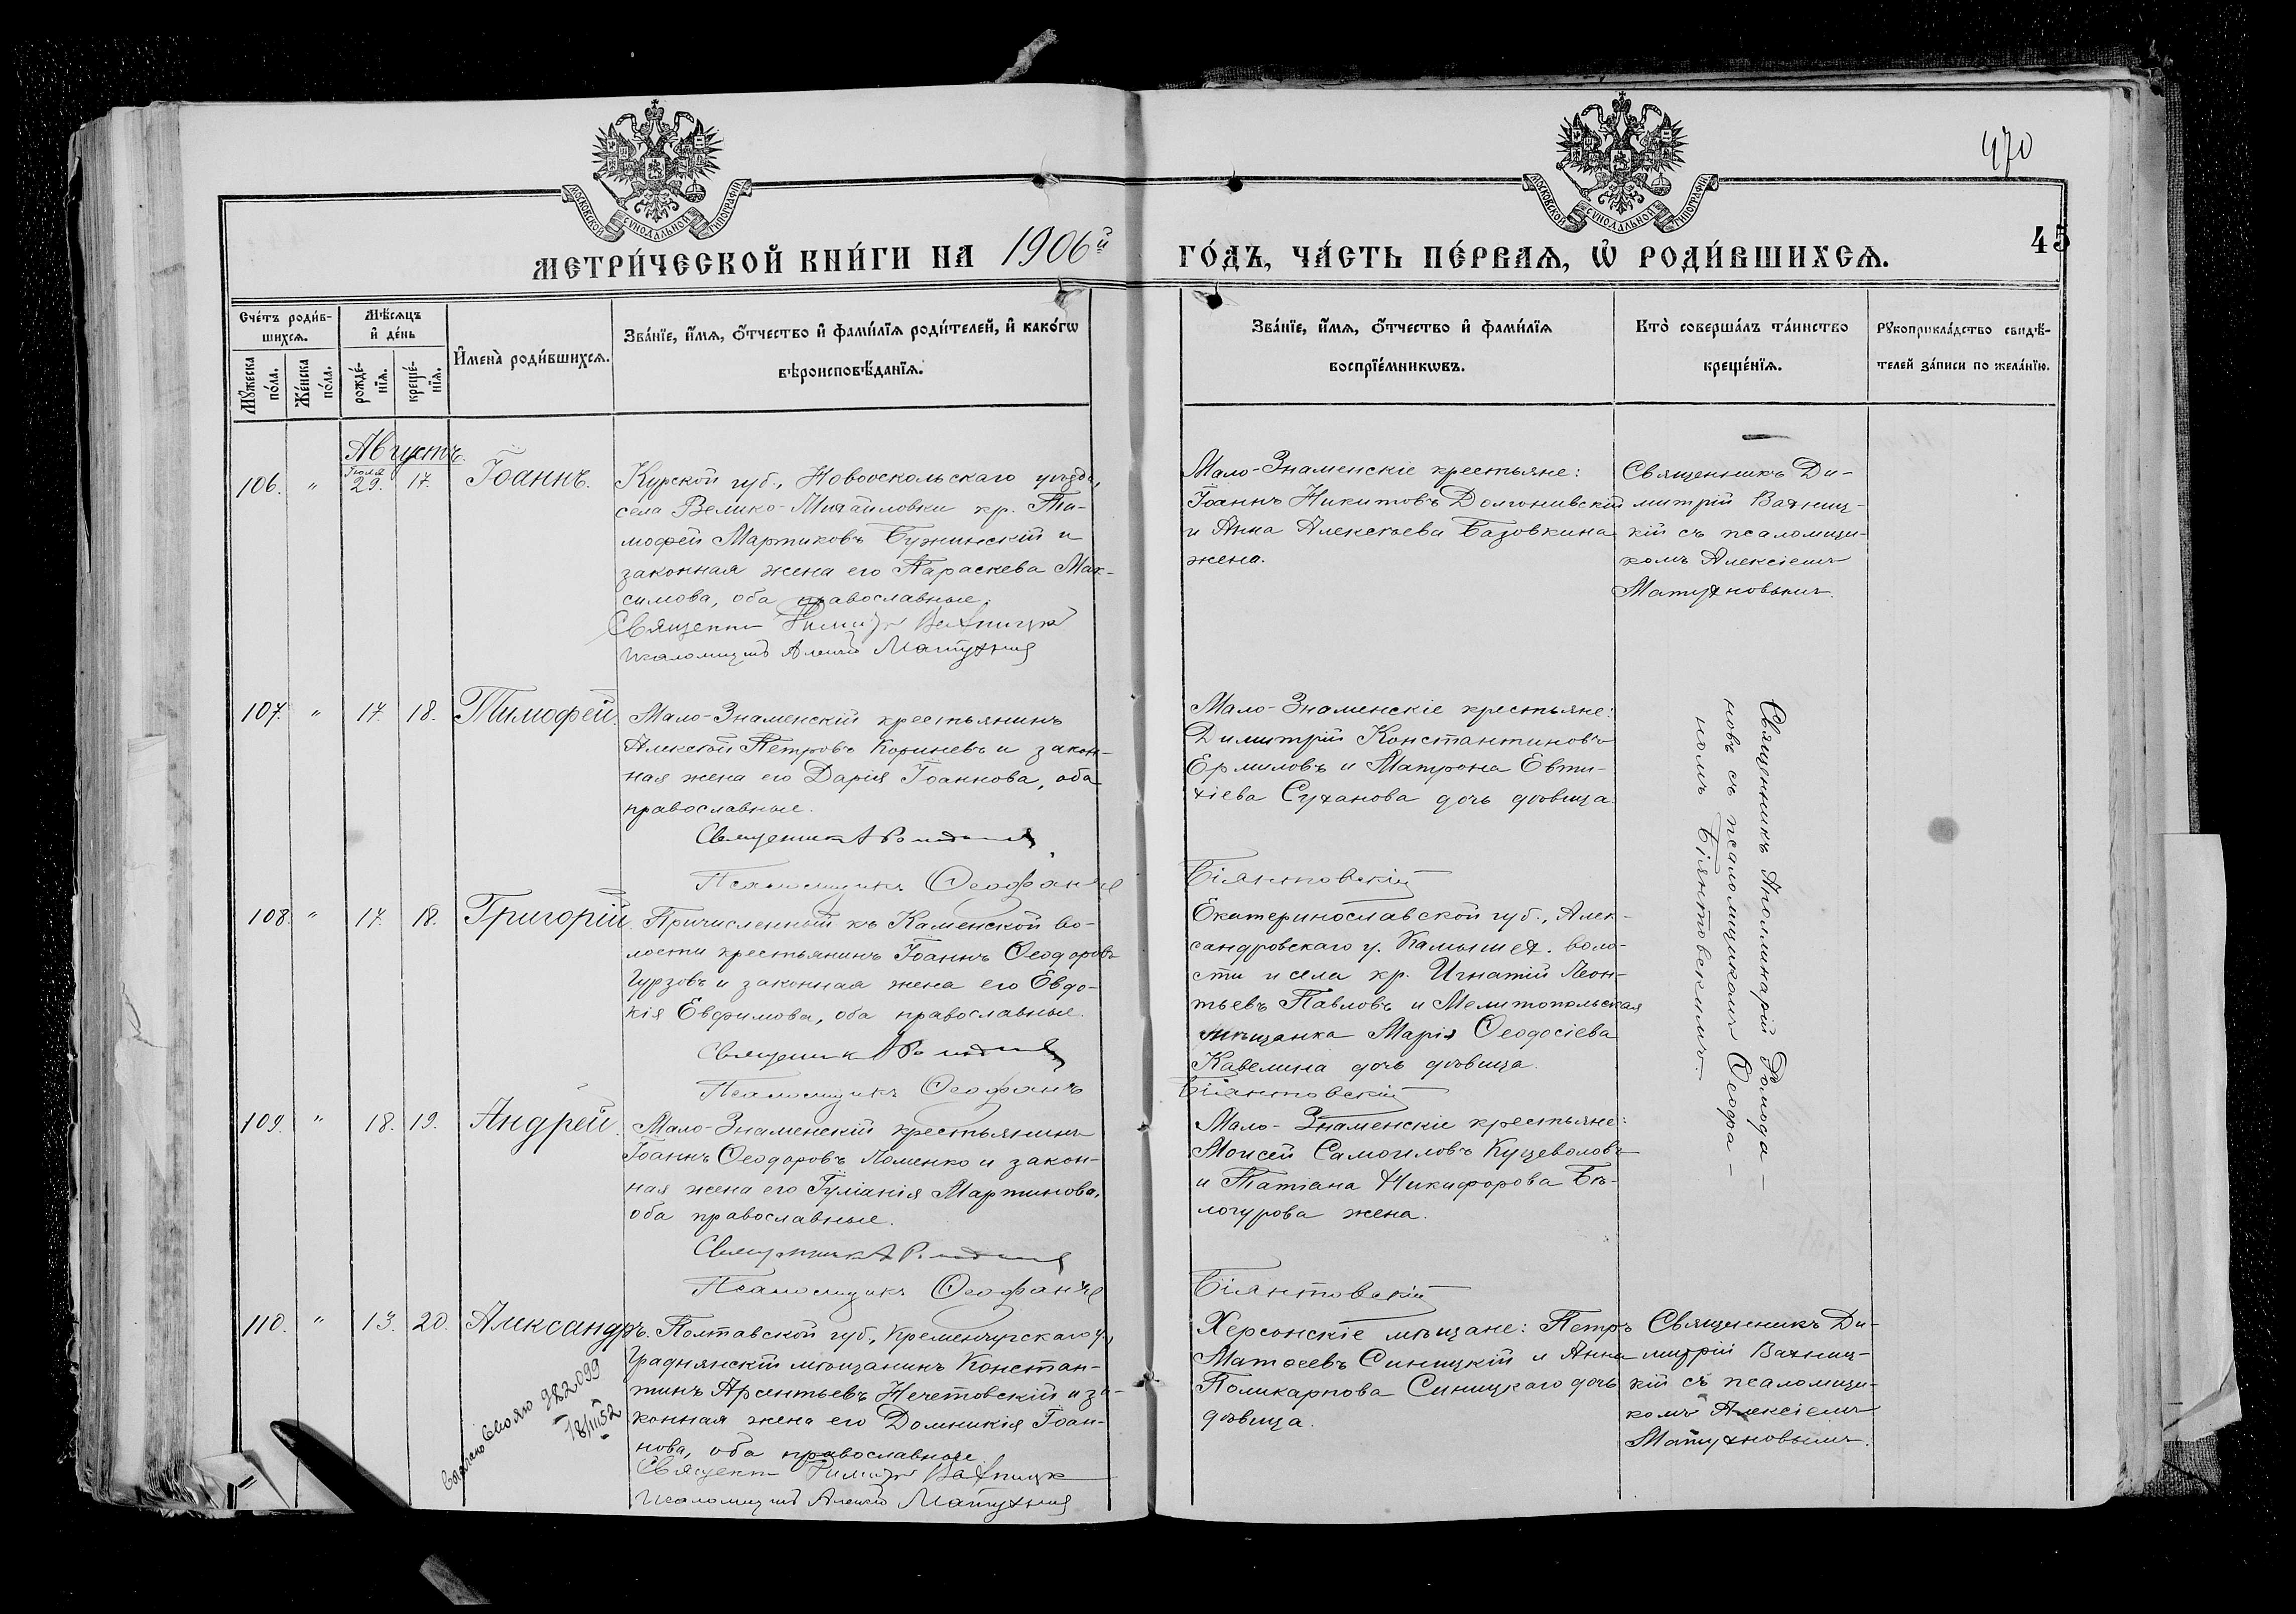 470
45
МОСКОВСКОЙ СУНОДАЛЬНОЙ ТИПОГРАФІИ
МОСКОВСКОЙ СУНОДАЛЬНОЙ ТИПОГРАФІИ
МЕТРИ́ЧЕСКОЙ КНИ́ГИ НА 1906й ГО́ДЪ, ЧА́СТЬ ПЕ́РВАЯ, Ѡ РОДИ́ВШИХСЯ.
Сче́тъ роди́в-
шихся.
Мꙋ́жеска по́ла.
Же́нска по́ла.
Мѣ́сяцъ и де́нь
рожде́-
нїя.
креще́-
нїя.
Имена̀ роди́вшихся.
Зва́нїе, и́мя, о́тчество и фами́лїя роди́телей, и како́гѡ
вѣроисповѣ́данїя.
Зва́нїе, и́мя, о́тчество и фами́лїя
воспрїе́мникѡвъ.
Кто̀ соверша́лъ та́инство
креще́нїя.
Рꙋкоприкла́дство свидѣ́-
телей за́писи по жела́нїю.
Августъ.
106. " Іюля 29. 17. Іоаннъ.
Курской губ., Новооскольскаго уѣзда,
села Велико-Михайловки кр. Ти-
мофей Мартиновъ Бужинскій и
законная жена его Параскева Мак-
симова, оба православные.
Священникъ Димитрій Вахницкій
Псаломщикъ Алексій Матухновъ
Мало-Знаменскіе крестьяне:
Іоаннъ Никитовъ Долгонивскій
и Анна Алексѣева Базовкина
жена.
Священникъ Ди-
митрій Вахниц-
кій съ псаломщи-
комъ Алексіемъ
Матухновымъ.
107. " 17. 18. Тимофей.
Мало-Знаменскій крестьянинъ
Алексѣй Петровъ Кориневъ и закон-
ная жена его Дарія Іоаннова, оба
православные.
Священникъ А Ромода
Псаломщикъ Ѳеофанъ Біянтовскій
Мало-Знаменскіе крестьяне:
Димитрій Константиновъ
Ермиловъ и Матрона Евти-
хіева Суханова дочь дѣвица.
Священникъ Аполлинарій Ромода-
новъ съ псаломщикомъ Ѳеофа-
номъ Біянтовскимъ.
108. " 17. 18. Григорій.
Причисленный къ Каменской во-
лости крестьянинъ Іоаннъ Ѳеодоровъ
Гурзовъ и законная жена его Евдо-
кія Евфимова, оба православные.
Священникъ А Ромода
Псаломщикъ Ѳеофанъ Біянтовскій
Екатеринославской губ., Алек-
сандровскаго у. Камышев. воло-
сти и села кр. Игнатій Леон-
тьевъ Павловъ и Мелитопольская
мѣщанка Марія Ѳеодосіева
Кавелина дочь дѣвица.
109. " 18. 19. Андрей.
Мало-Знаменскій крестьянинъ
Іоаннъ Ѳеодоровъ Ломенко и закон-
ная жена его Іуліанія Мартинова,
оба православные.
Священникъ А Ромода
Псаломщикъ Ѳеофанъ Біянтовскій
Мало-Знаменскіе крестьяне:
Моисей Самоиловъ Куцеволовъ
и Татіана Никифорова Бѣ-
логурова жена.
110. " 13. 20. Александръ.
Полтавской губ., Кременчугскаго у.,
Градижскій мѣщанинъ Констан-
тинъ Арсентьевъ Нечетовскій и за-
конная жена его Домникія Іоан-
нова, оба православные.
Священникъ Димитрій Вахницкій
Псаломщикъ Алексій Матухновъ
982099
18/III 52
Херсонскіе мѣщане: Петръ
Матѳеевъ Синицкій и Анна
Поликарпова Синицкаго дочь
дѣвица.
Священникъ Ди-
митрій Вахниц-
кій съ псаломщи-
комъ Алексіемъ
Матухновымъ.